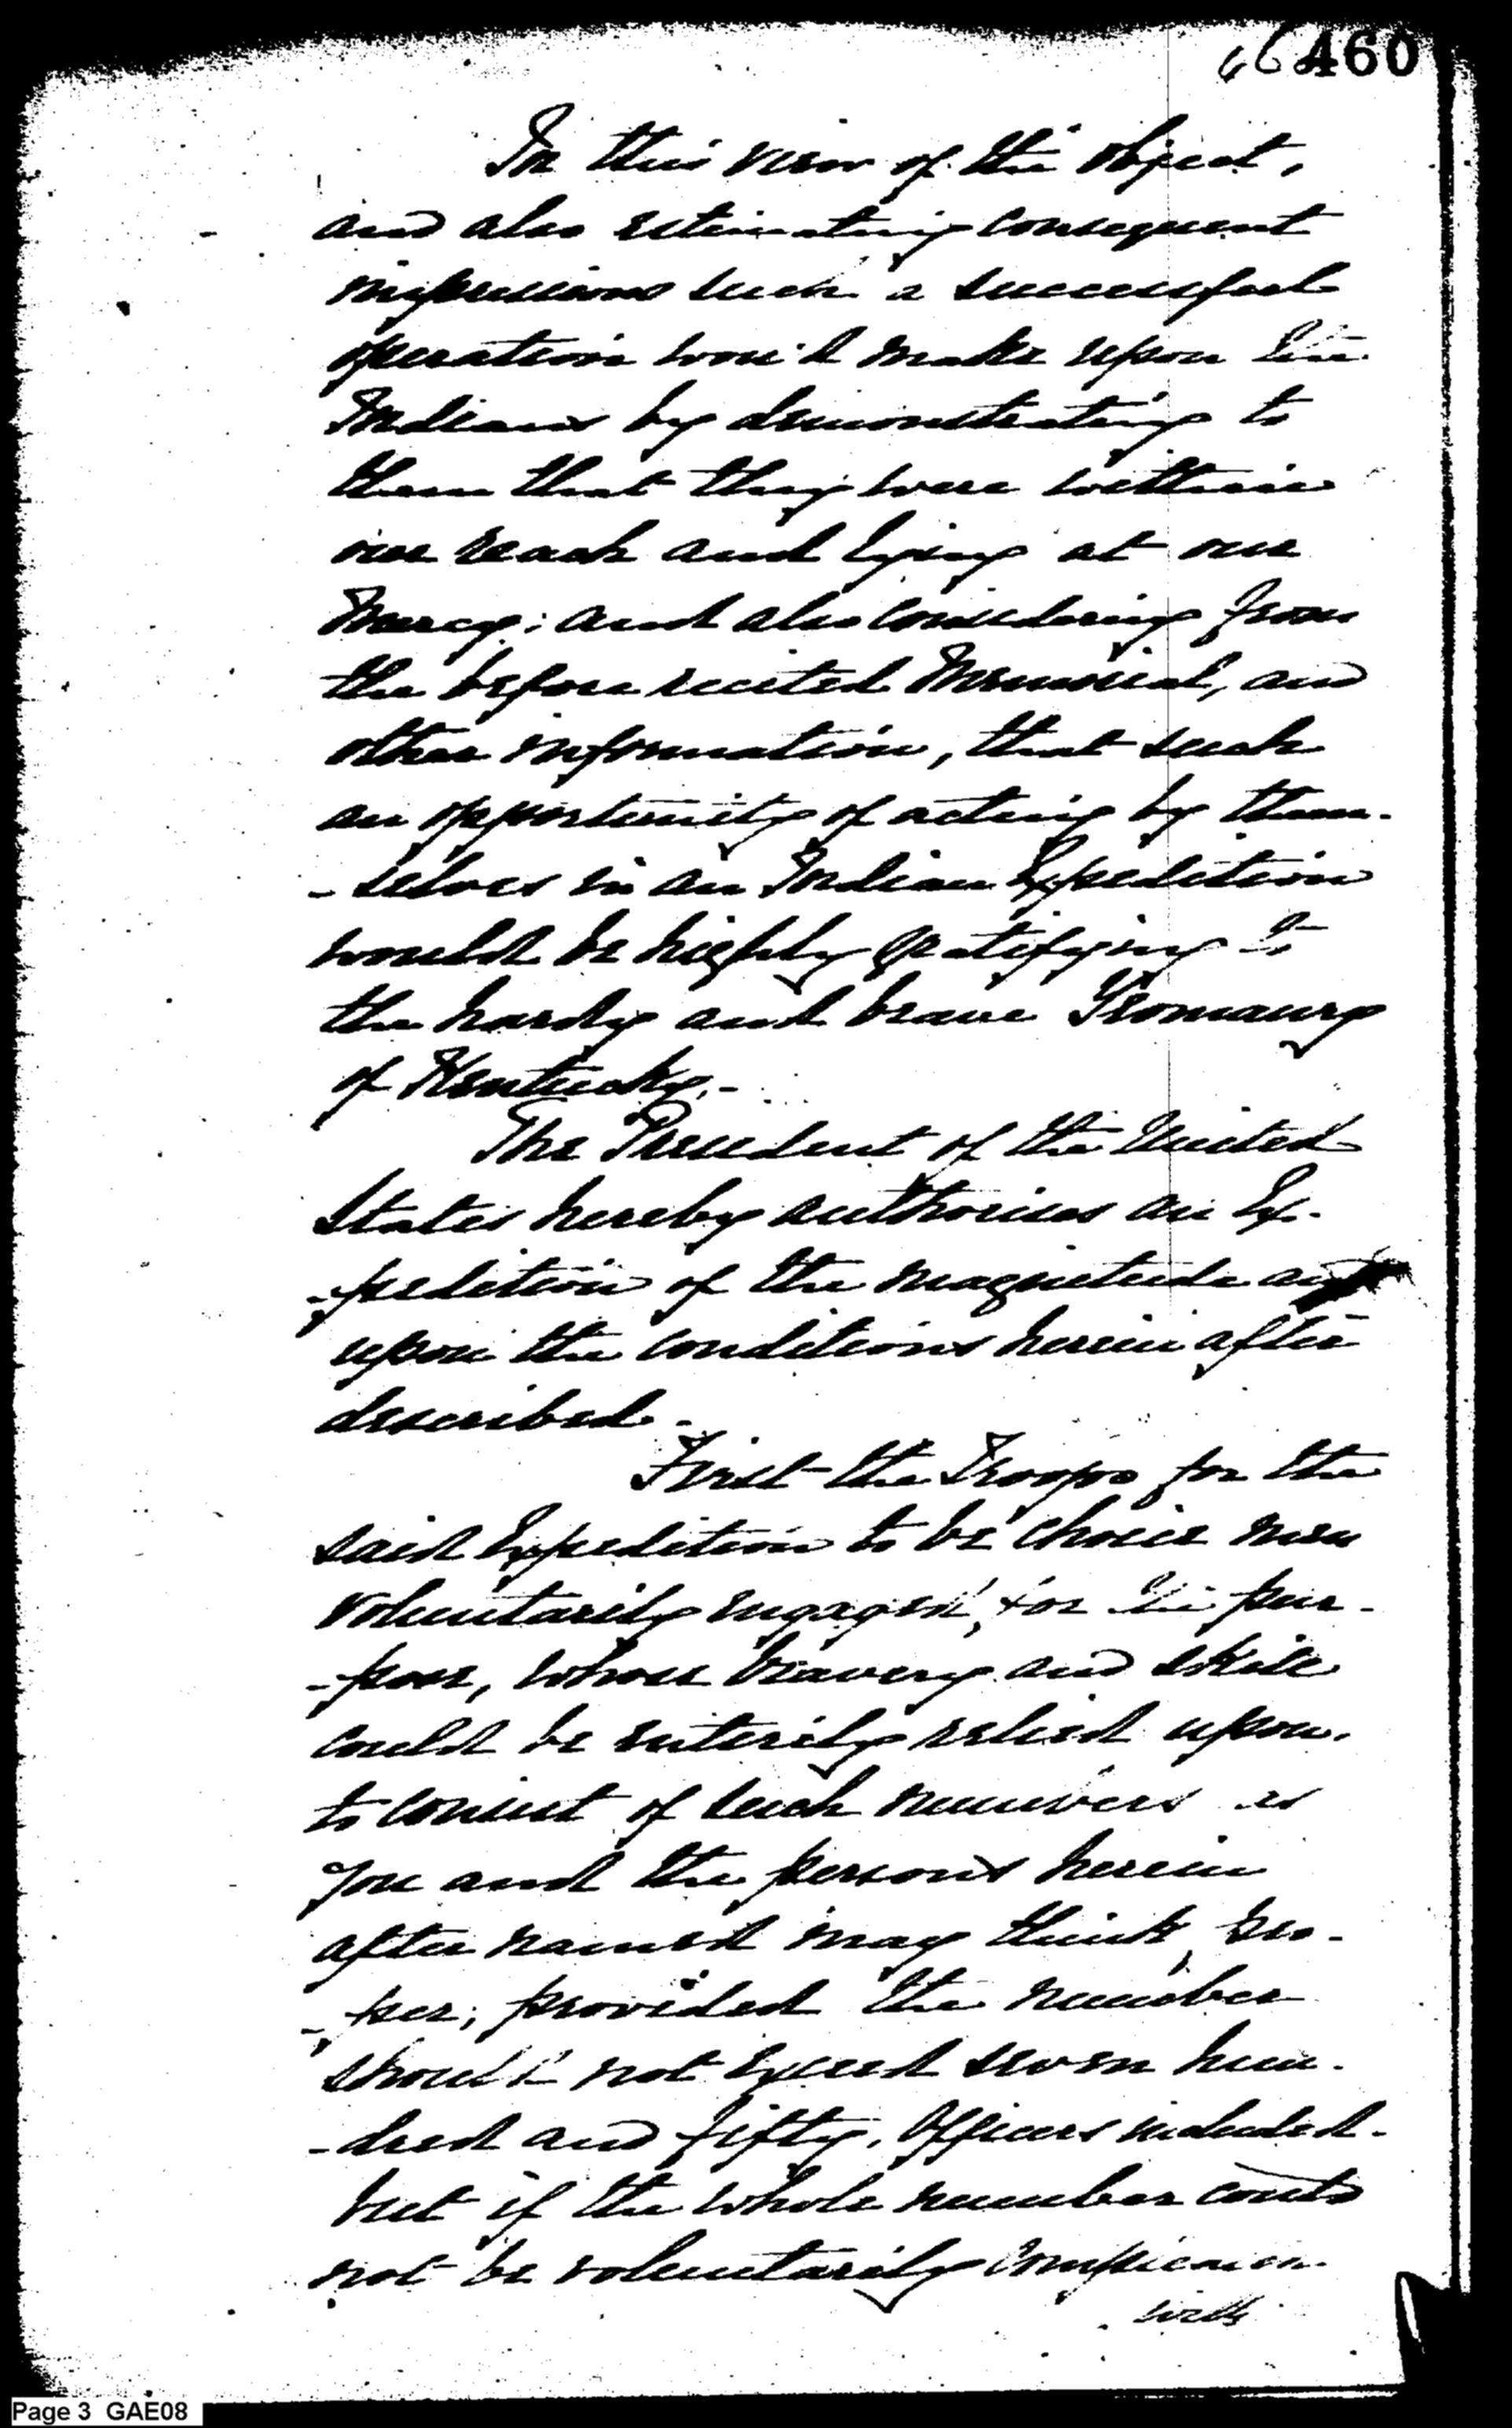 460
In this view of the object,
and also estimating consequent
impressions such a successful
operation would make upon the
Indians by demonstrating to
them that they were within
our reach and lying at our
Mercy; and also considering from
the before recited Memorial, and
other information, that such
an opportunity of acting by them-
-selves in an Indian Expedition
would be highly gratifying to
the hardy and brave Yeomanry
of Kentucky.-
The President of the United
States hereby authorises an Ex-
-pedition of the magnitude and
upon the conditions herein after
described.
First the Troops for the
said Expedition to be choice men
voluntarily engaged, for the pur-
-pose, whose bravery and skill
could be enterily relied upon,
to consist of such numbers as
you and the persons herein
after named may think pro-
-per; provided the number
should not exceed seven hun-
-dred and fifty, Officers included-
but if the whole number could
not be voluntarily
with
Page 3 GAE08